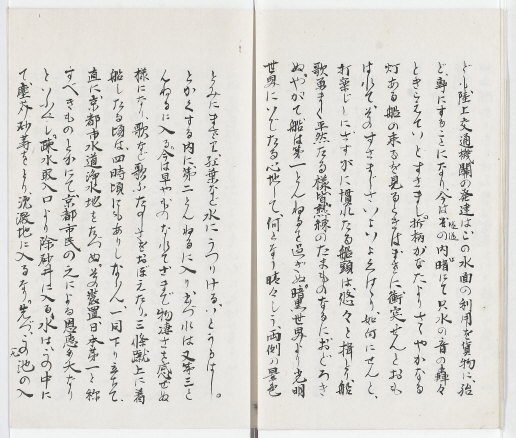 ども陸上交通機関の発達はこの水面の利用を貨物に殆
ど専にすることになり今は
の内暗にて只水の音の轟々
ときこえていとすさまし折柄かなたよりさゝやかなる
灯ある船の来るを見るときはまさに衝突せんとおも
はれてそのすさましさいよいよ
如何にせんと
打案じしにさすがに慣れたる船頭は悠々と楫とり船
歌勇ましく平然たる様皆熟練のたまものなるにおどろき
ぬやがて船は第一とんねるを過ぎぬ暗黒世界より光明
世界にいでたる心地して何となう晴々しう両側の景色
とみにまさりて紅葉など水にうつりけるいとうるはし。
とかくする内に第二とんねるに入りぬ
又第三と
んねるに入る今は早やものなれてさまで物凄さを感ぜぬ
様になり歌など歌ふたのしさをおぼえたり三條蹴上に着
船したる頃は四時頃にもありしならん一同下り立ちて
直に京都市水道浄水地をたづぬその装置日本第一と称
すべきものとかにて京都市民の之による恩恵も大なり
といふべし疏水取入口より除砂井に入る水はこの中に
て塵芥砂等をとり沈澱池に入るなり先づこの池の入